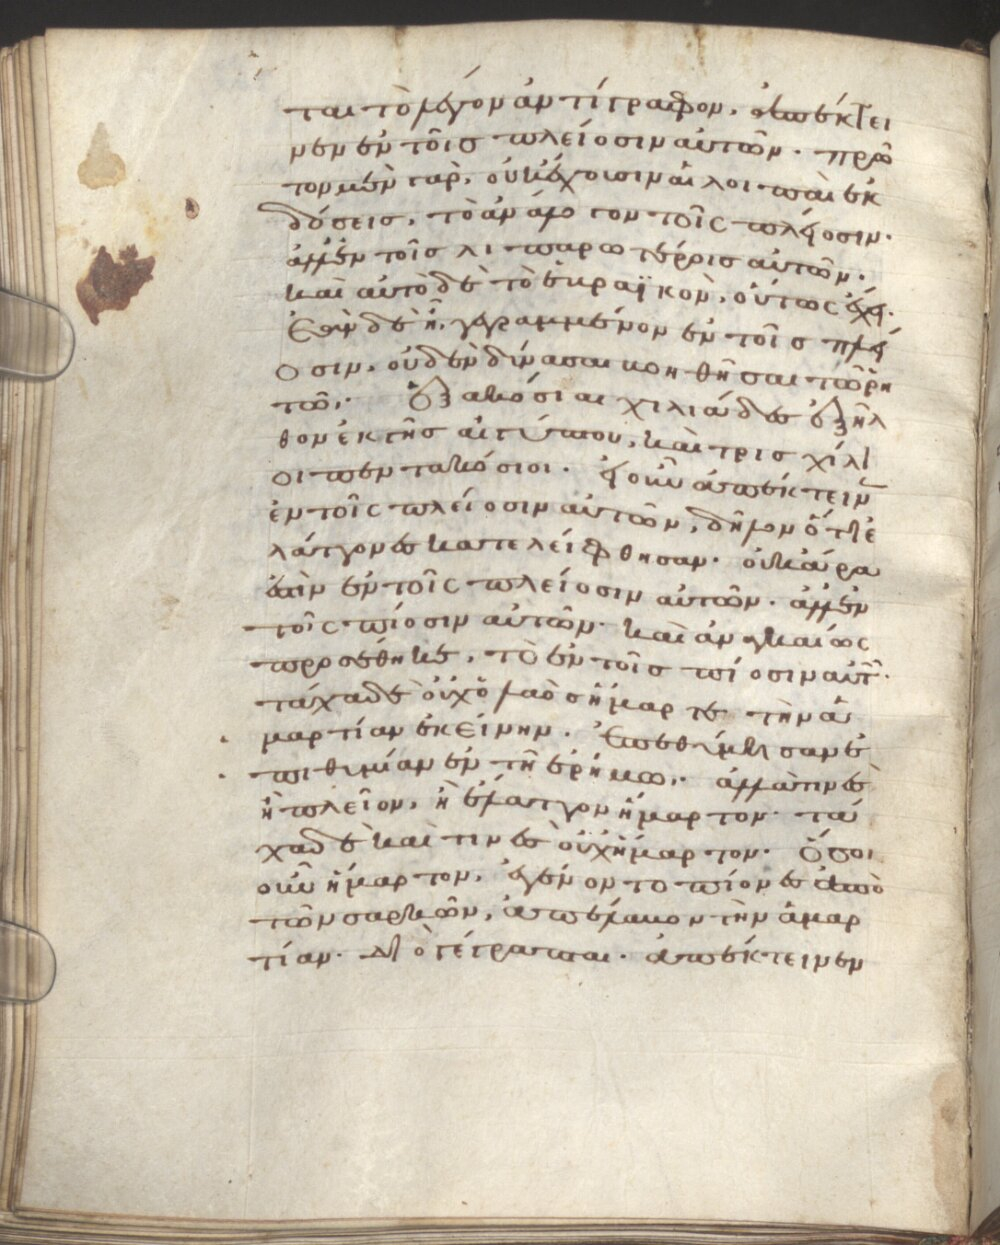 ται τὸ λέγον ἀντίγραφον, ἀπέκτει
νεν ἐν τοῖς πλείοσιν αὐτῶν. πρῶ
τον μὲν γὰρ, οὐκ ἔχουσιν αἱ λοιπαὶ ἐκ
δόσεις, τὸ ἀνάλογον τοῖς πλείοσιν.
ἀλλ' ἐν τοῖς λιπαρωτέροις αὐτῶν.
καὶ αὐτὸ δὲ τὸ ἑβραϊκὸν, οὕτως ἔχει.
Ἐὰν δὲ ἦ γεγραμμένον ἐν τοῖς πλεί
οσιν, οὐδὲν δύναται βοηθῆσαι τῶ ῥη
τῶ. Ἑξακόσιαι χιλιάδες ἐξῆλ
θον ἐκ τῆς αἰγύπτου, καὶ τρισχίλι
οι πεντακόσιοι. εἰ οὖν ἀπέκτεινεν
ἐν τοῖς πλείοσιν αὐτῶν, δῆλον ὅτι ἐ
λάττονες κατελείφθησαν. οὐκ ἄρα
ἐστὶν ἐν τοῖς πλείοσιν αὐτῶν. ἀλλ' ἐν
τοῖς πίοσιν αὐτῶν. καὶ ἀναγκαίως
προσέθηκε, τὸ ἐν τοῖς πίοσιν αὐτῶν.
τάχα δὲ οὐχ ὁ λαὸς ἥμαρτε τὴν ἁ
μαρτίαν ἐκείνην. Ἐπεθύμησαν ἐ
πιθυμίαν ἐν τῆ ἐρήμω. ἀλλά τινες
ἢ πλεῖον, ἢ ἔλαττον ἥμαρτον. τά
χα δὲ καί τινες οὐχ ἥμαρτον. Ὅσοι
οὖν ἥμαρτον, ἐγένοντο πίονες ἀπὸ
τῶν σαρκῶν, ἀπέλαβον τὴν ἁμαρ
τίαν. διὸ γέγραπται. ἀπέκτεινεν